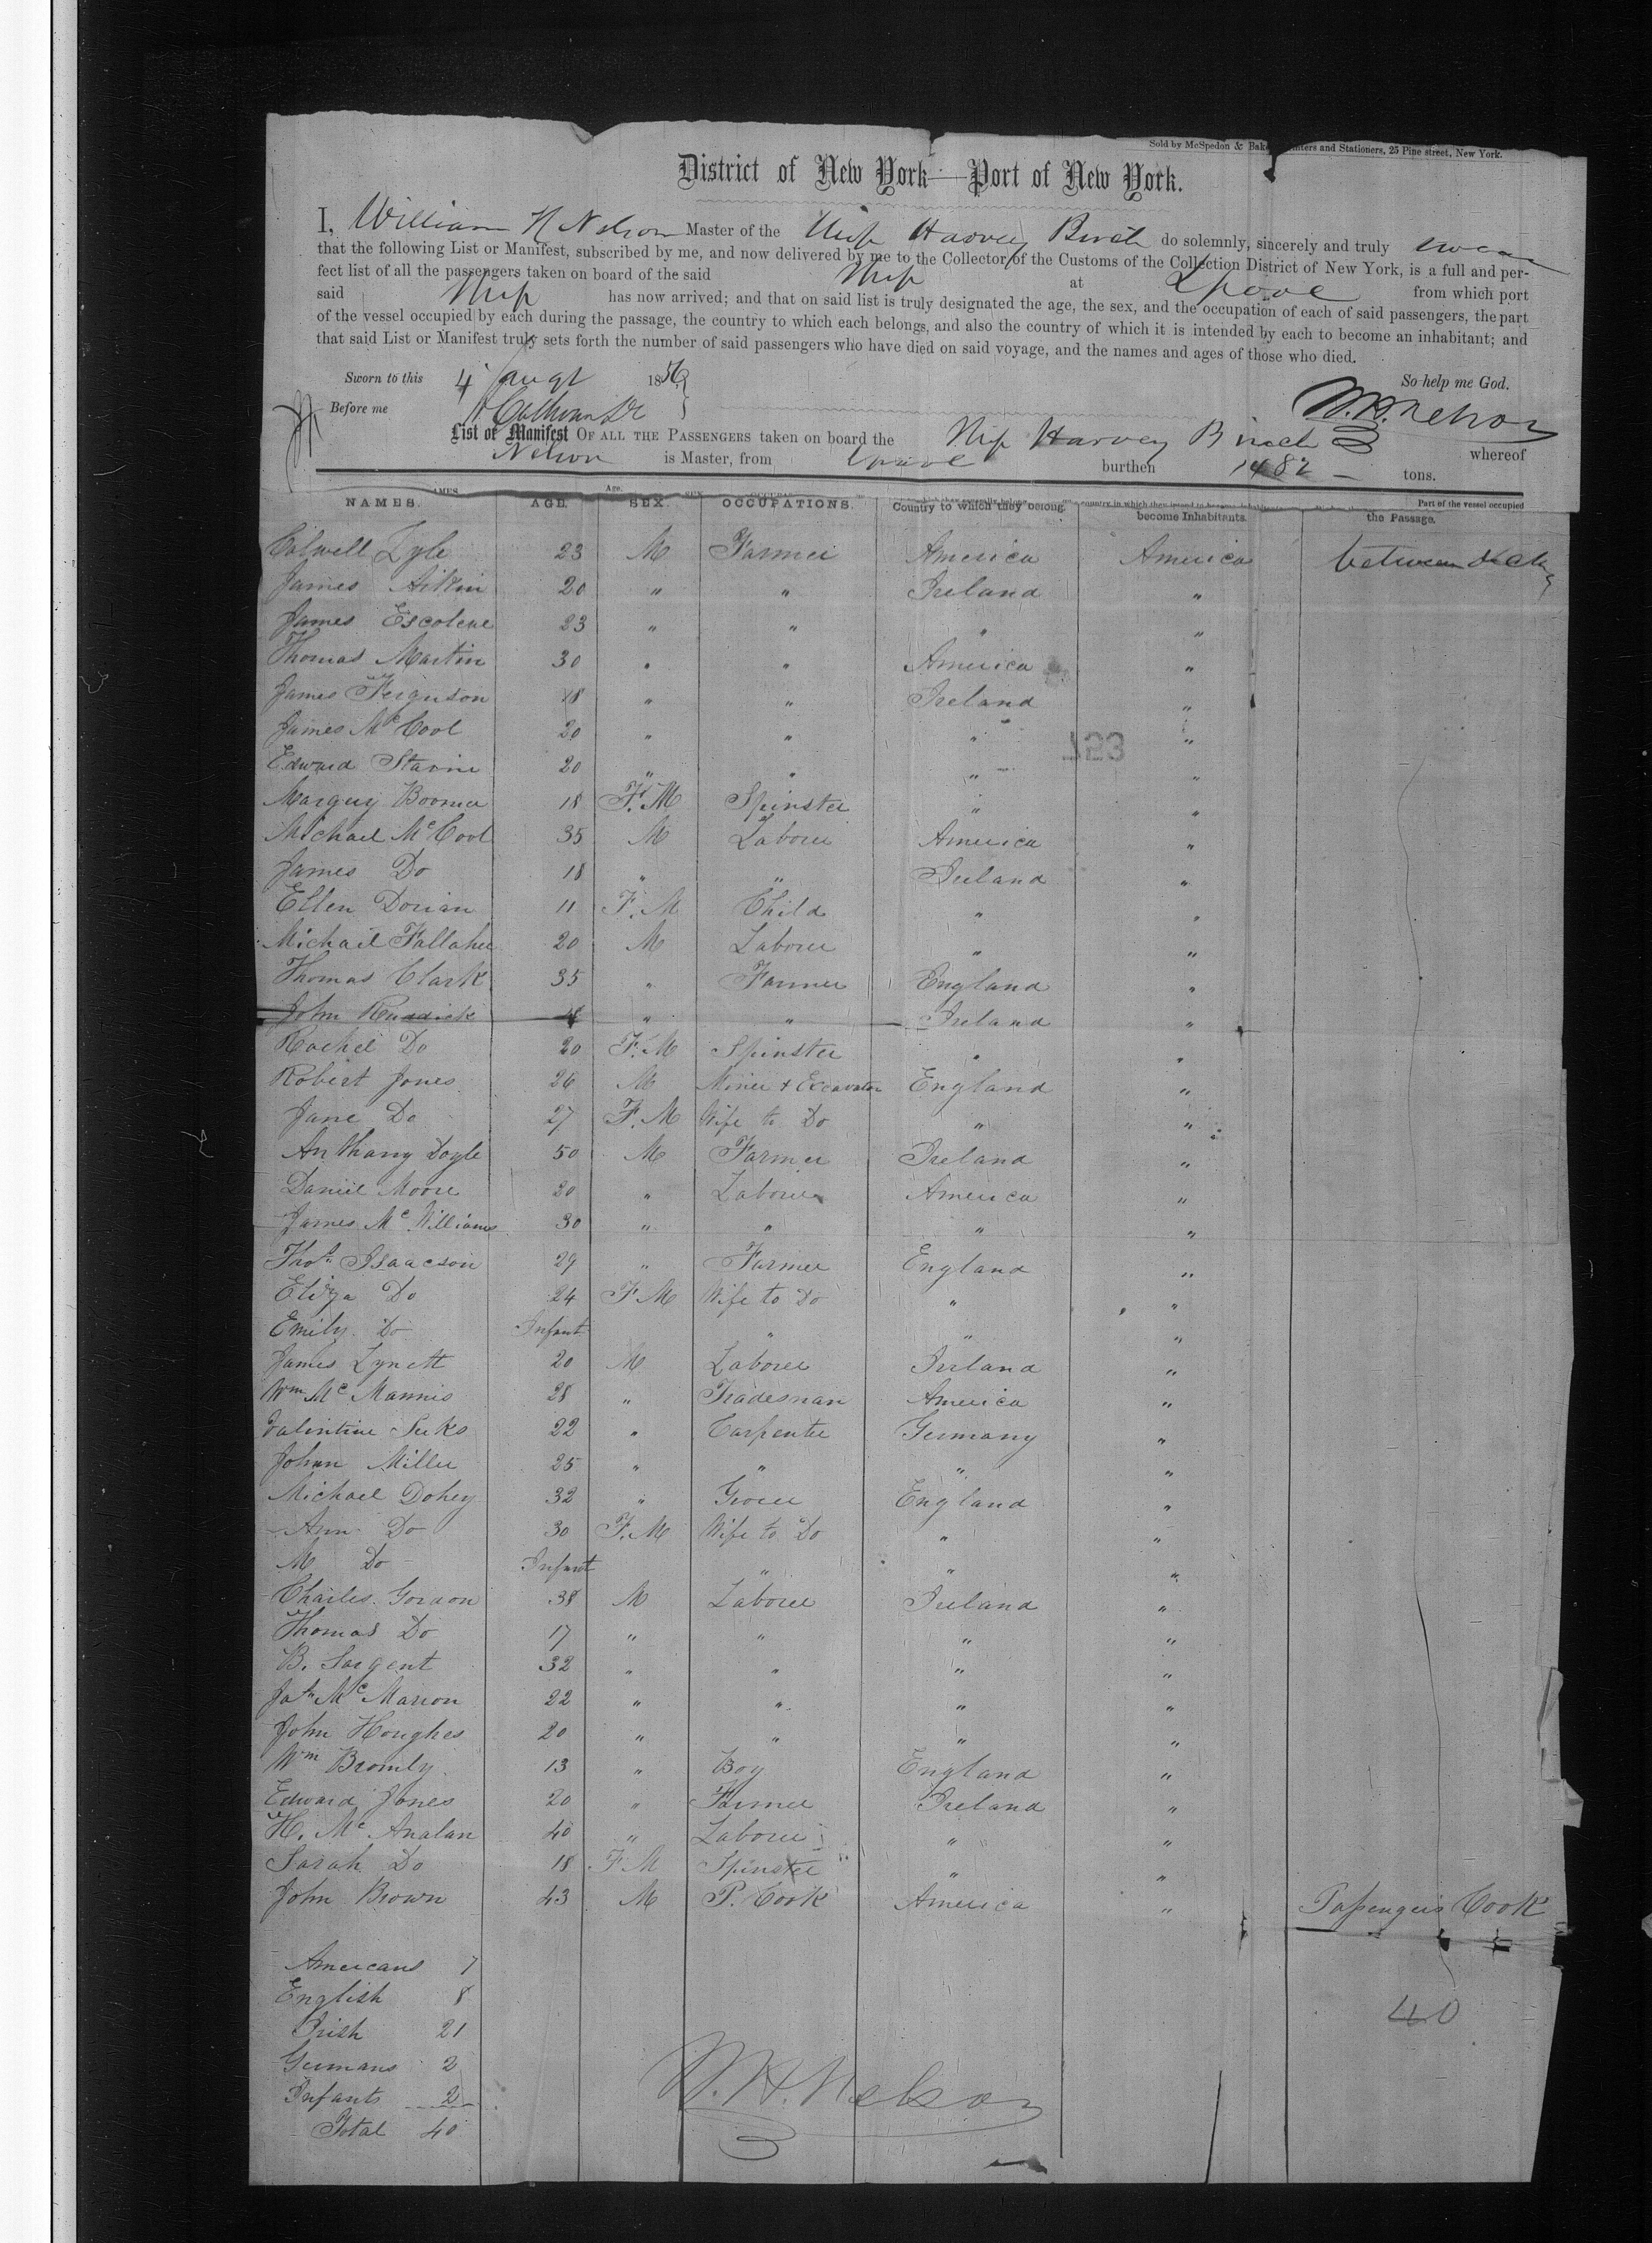 Sold by McSpedon & Bake nters and Stationers, 25 Pine street, New York.
District of New York—Port of New York.
I, William H Nelson Master of the Ship Harvey Birch do solemnly, sincerely and truly swear
that the following List or Manifest, subscribed by me, and now delivered by me to the Collector of the Customs of the Collection District of New York, is a full and per-
fect list of all the passengers taken on board of the said Ship at Lpool from which port
said Ship has now arrived; and that on said list is truly designated the age, the sex, and the occupation of each of said passengers, the part
of the vessel occupied by each during the passage, the country to which each belongs, and also the country of which it is intended by each to become an inhabitant; and
that said List or Manifest truly sets forth the number of said passengers who have died on said voyage, and the names and ages of those who died.
Sworn to this 4 augt 1856 So help me God.
Before me Calhoun W.H. Nelson
List or Manifest OF ALL THE PASSENGERS taken on board the Ship Harvey Birch whereof
Nelson is Master, from Lpool burthen 1482 — tons.
NAMES. AGE. SEX. OCCUPATIONS. Country to which they belong. become Inhabitants. Part of the vessel occupied the Passage.
Colwell Lyle 23 M Farmer America America between decks
James Aitkin 20 " " Ireland "
James 23 " " " "
Thomas Martin 30 " " America "
James Ferguson 18 " " Ireland "
James McCool 20 " " " "
Edward 20 " " " "
Boomer 18 F.M Spinster " "
Michael McCool 35 M Laborer America "
James Do 18 " " Ireland "
Ellen Dorian 11 F.M Child " "
Michael Fallaher 20 M Laborer " "
Thomas Clark 35 " Farmer England "
John Ruddick 18 " " Ireland "
Rachel Do 20 F.M Spinster " "
Robert Jones 26 M Miner & Excavator England "
Jane Do 27 F.M Wife to Do " "
Anthony Doyle 50 M Farmer Ireland "
Daniel Moore 20 " Laborer America "
James McWilliams 30 " " " "
Thos Isaacson 29 " Farmer England "
Eliza Do 24 F M Wife to Do " "
Emily Do Infant " " "
James Lynett 20 M Laborer Ireland "
Wm McMannis 28 " Tradesman America "
Valintine 22 " Carpenter Germany "
Johan Miller 25 " " " "
Michael Dohey 32 " Grocer England "
Ann Do 30 F.M Wife to Do " "
M Do Infant " " "
Charles Gordon 38 M Laborer Ireland "
Thomas Do 17 " " " "
B. Sargent 32 " " " "
McMarron 22 " " " "
John Houghes 20 " " " "
Wm Bromly 13 " Boy England "
Edward Jones 20 " Farmer Ireland "
H. McAnalan 40 " Laborer " "
Sarah Do 18 F M Spinster " "
John Brown 43 M P. Cook America " Passengers Cook
Americans 7
English 8
Irish 21
Germans 2
Infants 2
Total 40
40
W. H. Nelson